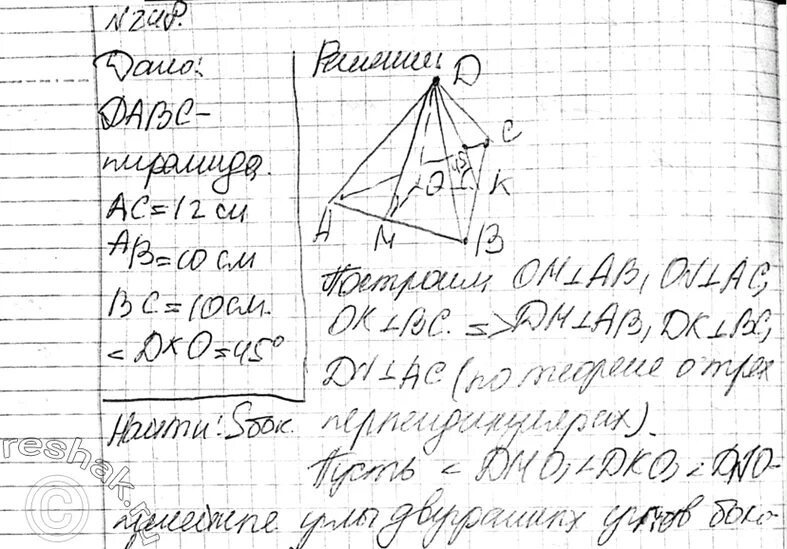 N 248.
Дано:
DABC-
пирамида.
AC=12 см
AB=10 см
BC=10 см.
∠DKO=45°
Найти: Sбок.
Решение:
D
C
45°
O
K
A
M
B
Построим OM⊥AB, ON⊥AC,
OK⊥BC. => DM⊥AB, DK⊥BC,
DN⊥AC (по теореме о трех
перпендикулярах).
Пусть ∠DMO, ∠DKO, ∠DNO-
линейные углы двугранных углов боко-
reshak.ru
©